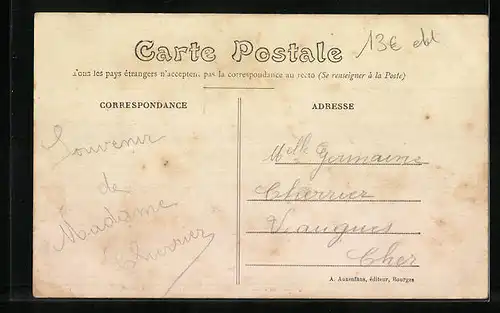 13€
Carte Postale
Tous les pays étrangers n'acceptent pas la correspondance au recto (Se renseigner à la Poste)
CORRESPONDANCE
ADRESSE
Souvenir
de
Madame
Cherrier
Melle Germaine
Cherrier
Veaugues
Cher
A. Auxenfans, éditeur, Bourges